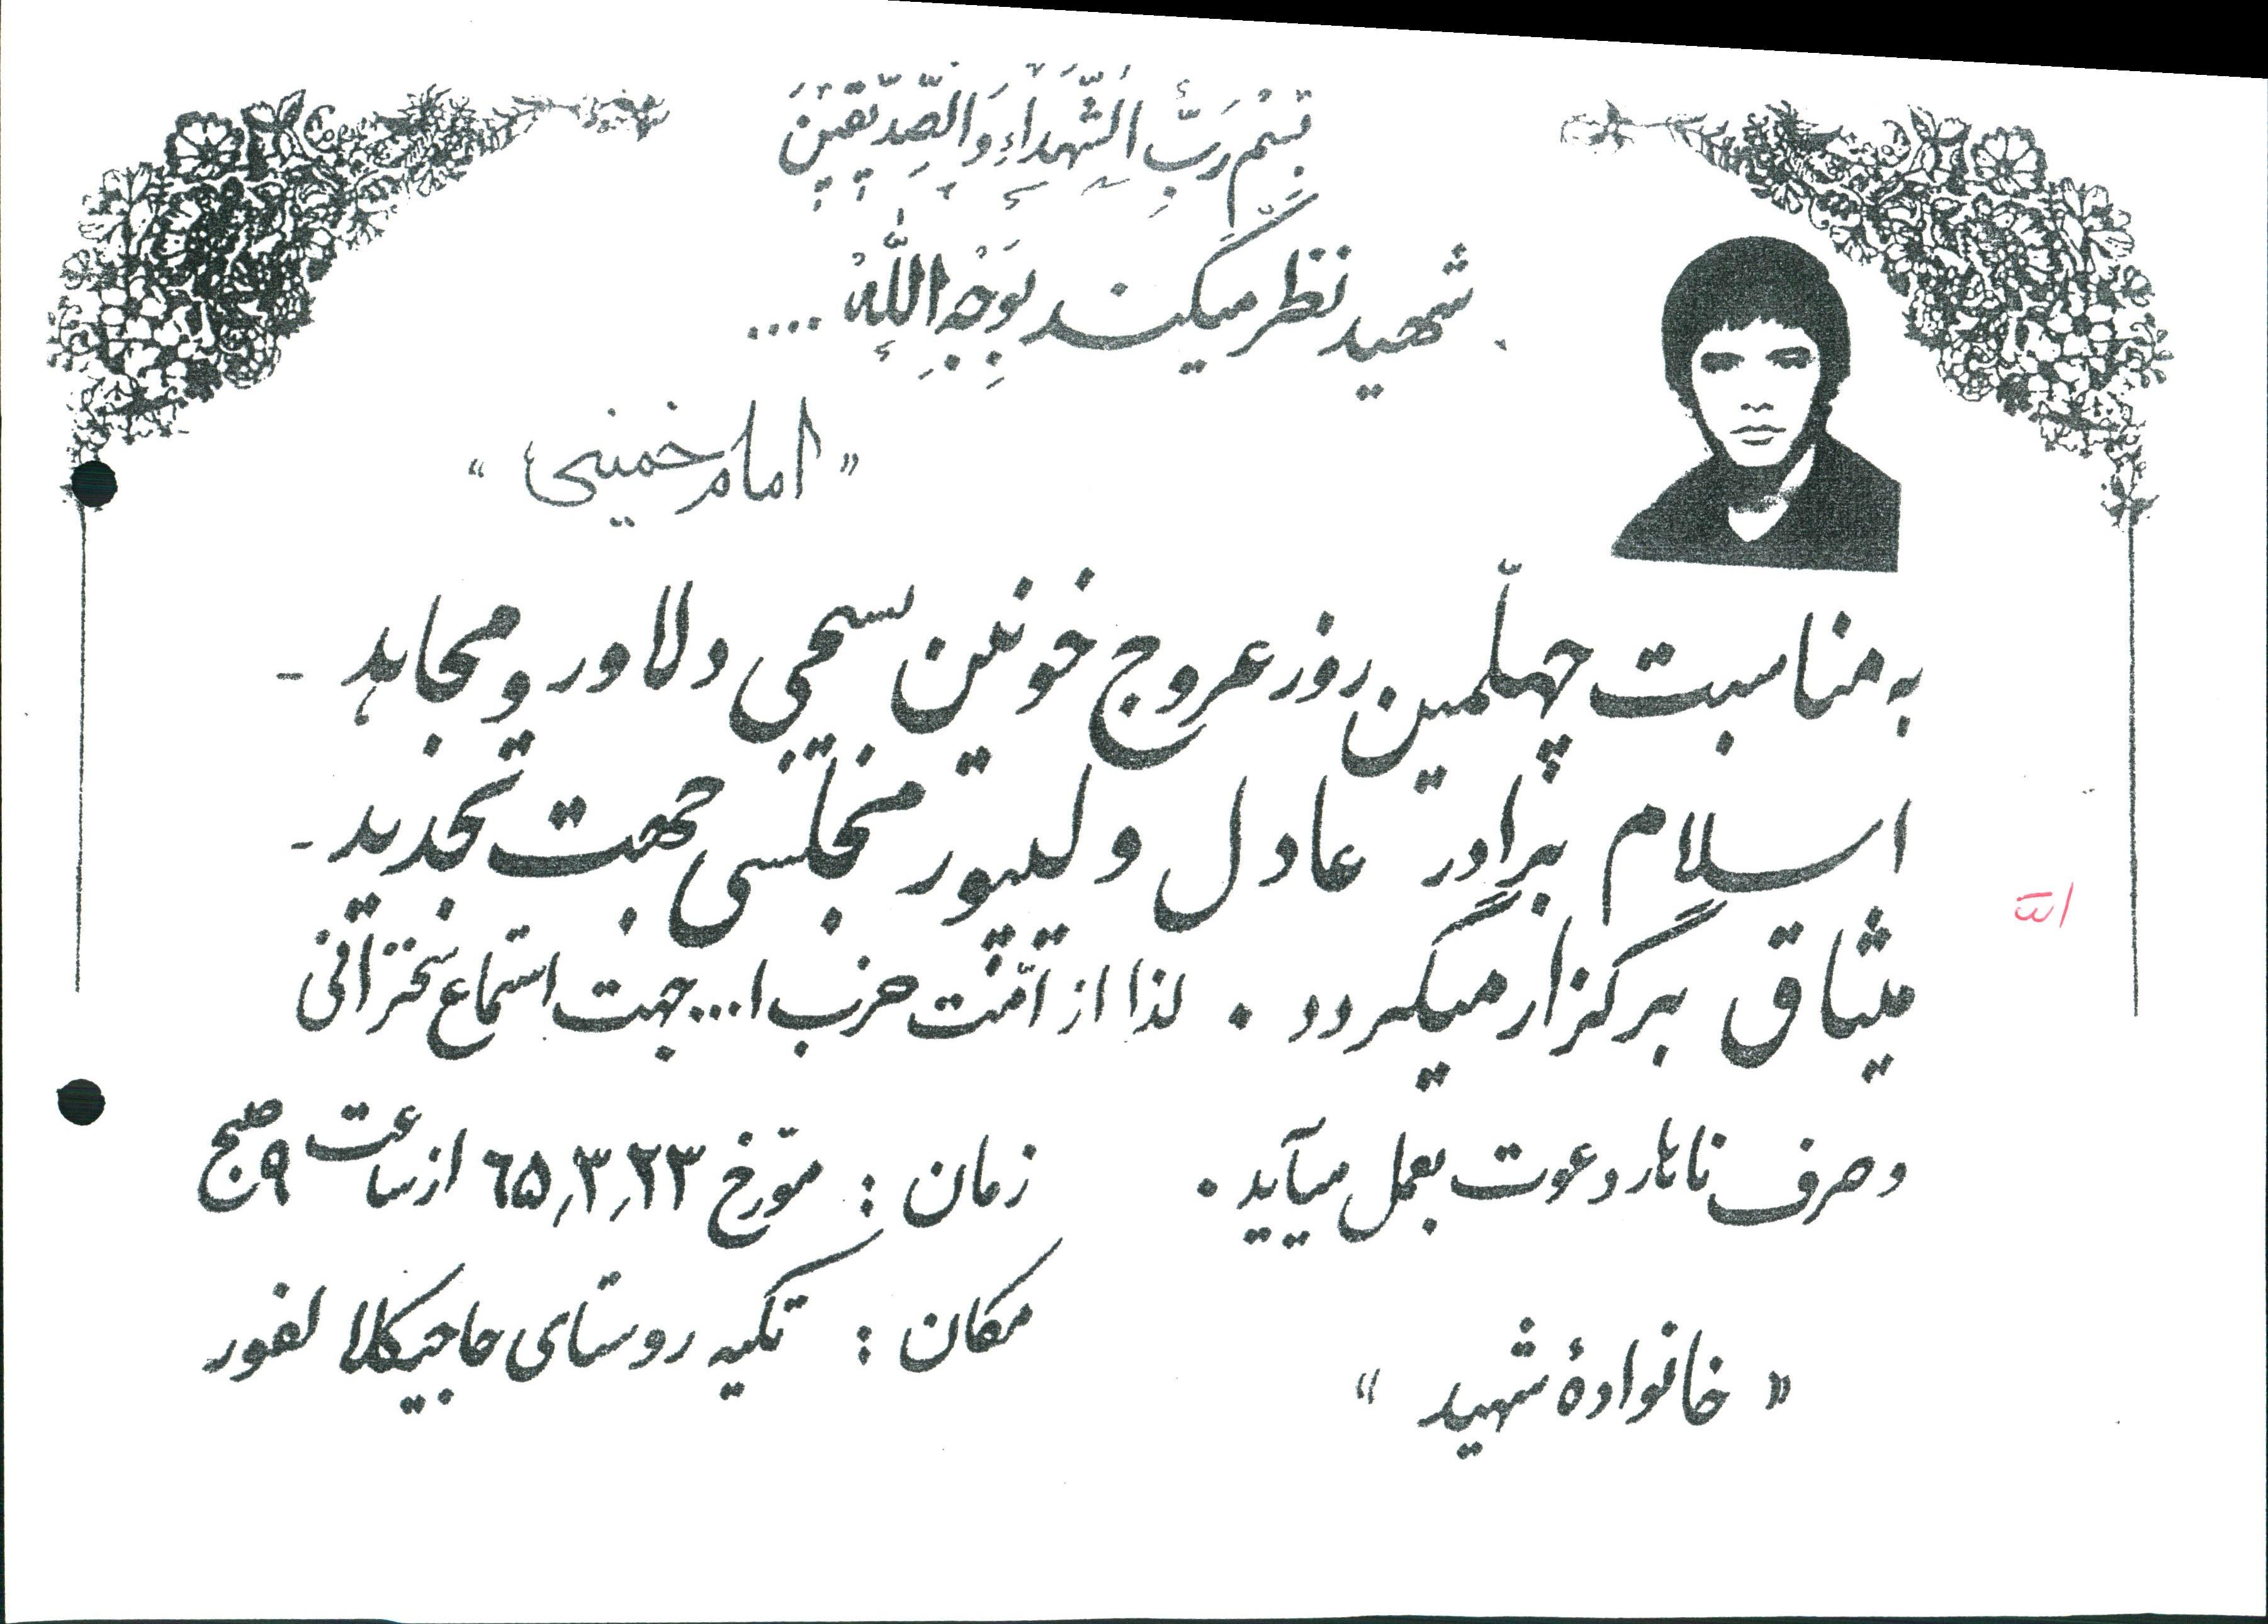 بِسْمِ رَبِّ الشُّهَدَاءِ وَالصِّدِّیقِینَ
شهید نظر میکند بِوَجْهِ اللَّهِ ....
« امام خمینی »
به مناسبت چهلّمین روز عروج خونین سمی دلاور و مجاهد -
اسلام برادر عادل ولیپور مجلسی جهت تجدید -
میثاق برگزار میگردد . لذا از امّت حزب ا... جهت استماع سخنرانی
و صرف ناهار دعوت بعمل میآید .
زمان : مورّخ ٢٣٫٣٫٦۵ از ساعت ۹ صبح
مکان : تکیه روستای حاجیکلا لفور
« خانوادهٔ شهید »